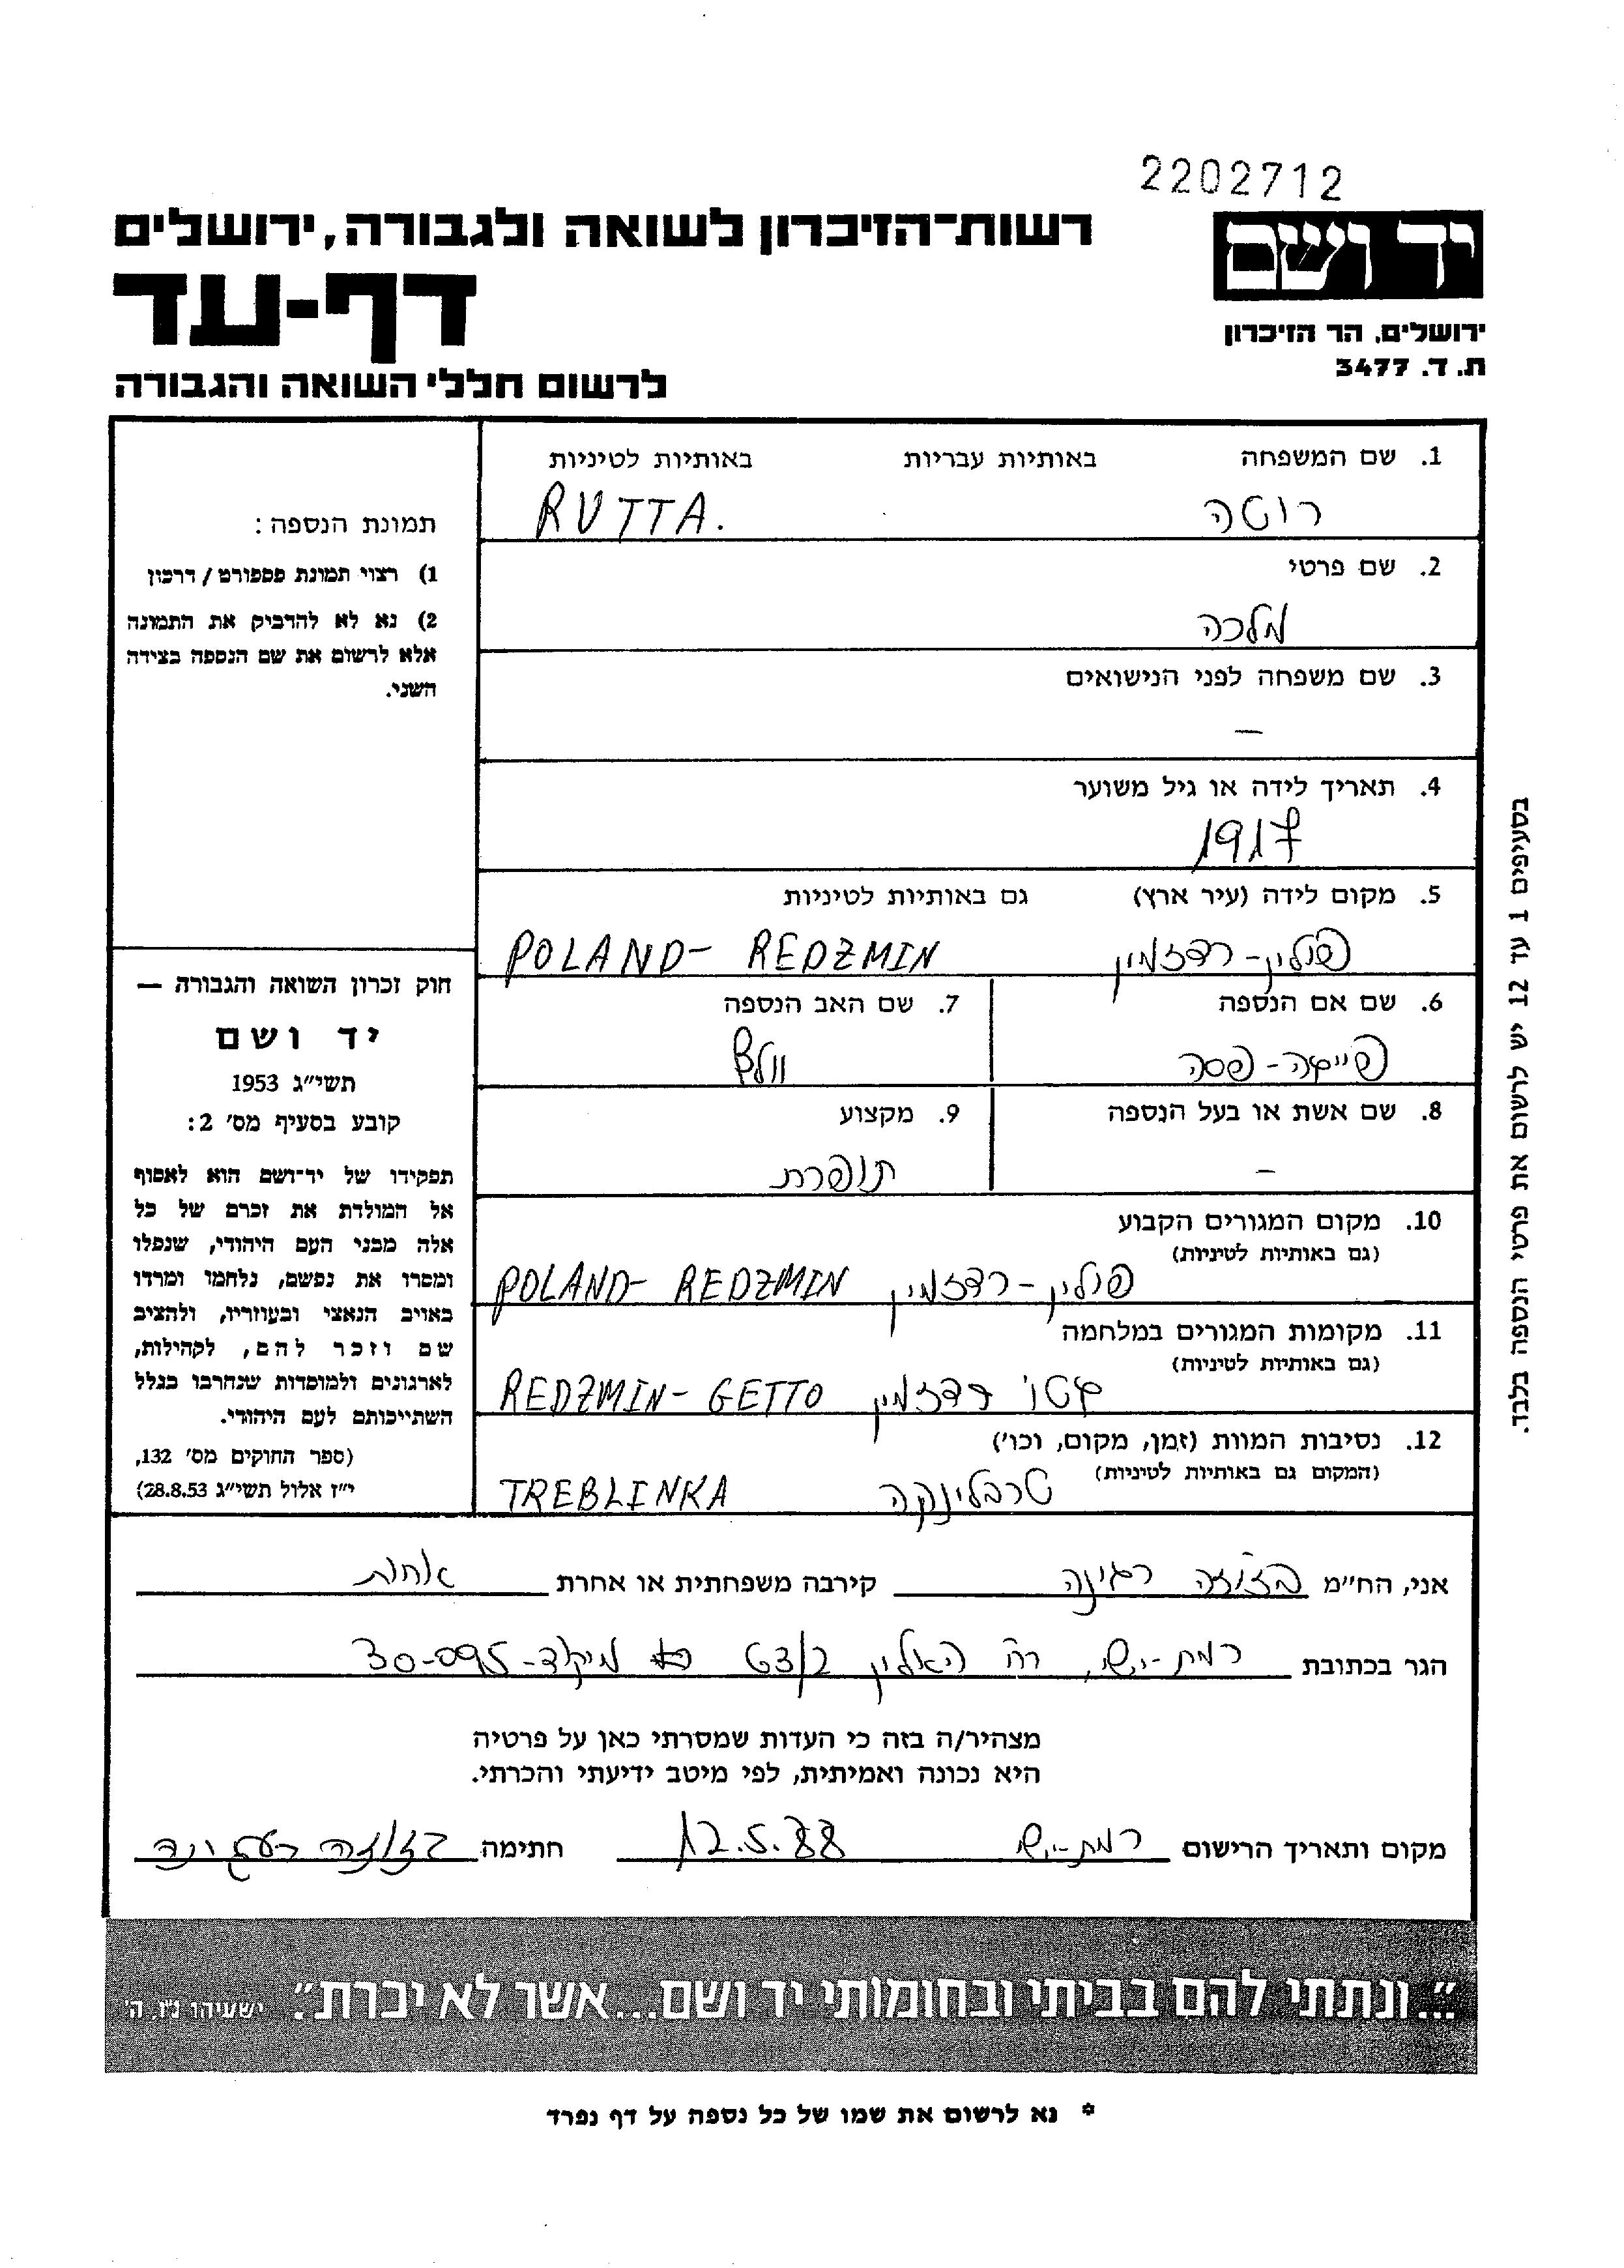 2202712
יד ושם
רשות-הזיכרון לשואה ולגבורה, ירושלים
דף-עד
ירושלים, הר הזיכרון
ת. ד. 3477
לרשום חללי השואה והגבורה
1. שם המשפחה באותיות עבריות באותיות לטיניות
רוטה RUTTA.
2. שם פרטי
מלכה
3. שם משפחה לפני הנישואים
—
4. תאריך לידה או גיל משוער
1917
5. מקום לידה (עיר ארץ) גם באותיות לטיניות
פולין-רדזמין POLAND- REDZMIN
6. שם אם הנספה 7. שם האב הנספה
פייגה-פסה
8. שם אשת או בעל הנספה 9. מקצוע
– תופרת
10. מקום המגורים הקבוע
(גם באותיות לטיניות)
פולין-רדזמין POLAND- REDZMIN
11. מקומות המגורים במלחמה
(גם באותיות לטיניות)
גטו רדזמין REDZMIN- GETTO
12. נסיבות המוות (זמן, מקום, וכו')
(המקום גם באותיות לטיניות)
טרבלינקה TREBLINKA
תמונת הנספה:
1) רצוי תמונת פספורט / דרכון
2) נא לא להדביק את התמונה
אלא לרשום את שם הנספה בצידה
השני.
חוק זכרון השואה והגבורה —
יד ושם
תשי״ג 1953
קובע בסעיף מס' 2:
תפקידו של יד־ושם הוא לאסוף
אל המולדת את זכרם של כל
אלה מבני העם היהודי, שנפלו
ומסרו את נפשם, נלחמו ומרדו
באויב הנאצי ובעוזריו, ולהציב
שם וזכר להם, לקהילות,
לארגונים ולמוסדות שנחרבו בגלל
השתייכותם לעם היהודי.
(ספר החוקים מס' 132,
י״ז אלול תשי״ג 28.8.53)
בסעיפים 1 עד 12 יש לרשום את פרטי הנספה בלבד.
אני, הח״מ רגינה קירבה משפחתית או אחרת אחות
הגר בכתובת רמת-ישי, רח האלון מיקוד-30-095
מצהיר/ה בזה כי העדות שמסרתי כאן על פרטיה
היא נכונה ואמיתית, לפי מיטב ידיעתי והכרתי.
מקום ותאריך הרישום רמת-ישי 12.5.88 חתימה
"...ונתתי להם בביתי ובחומותי יד ושם...אשר לא יכרת". ישעיהו נ״ו, ה'
* נא לרשום את שמו של כל נספה על דף נפרד